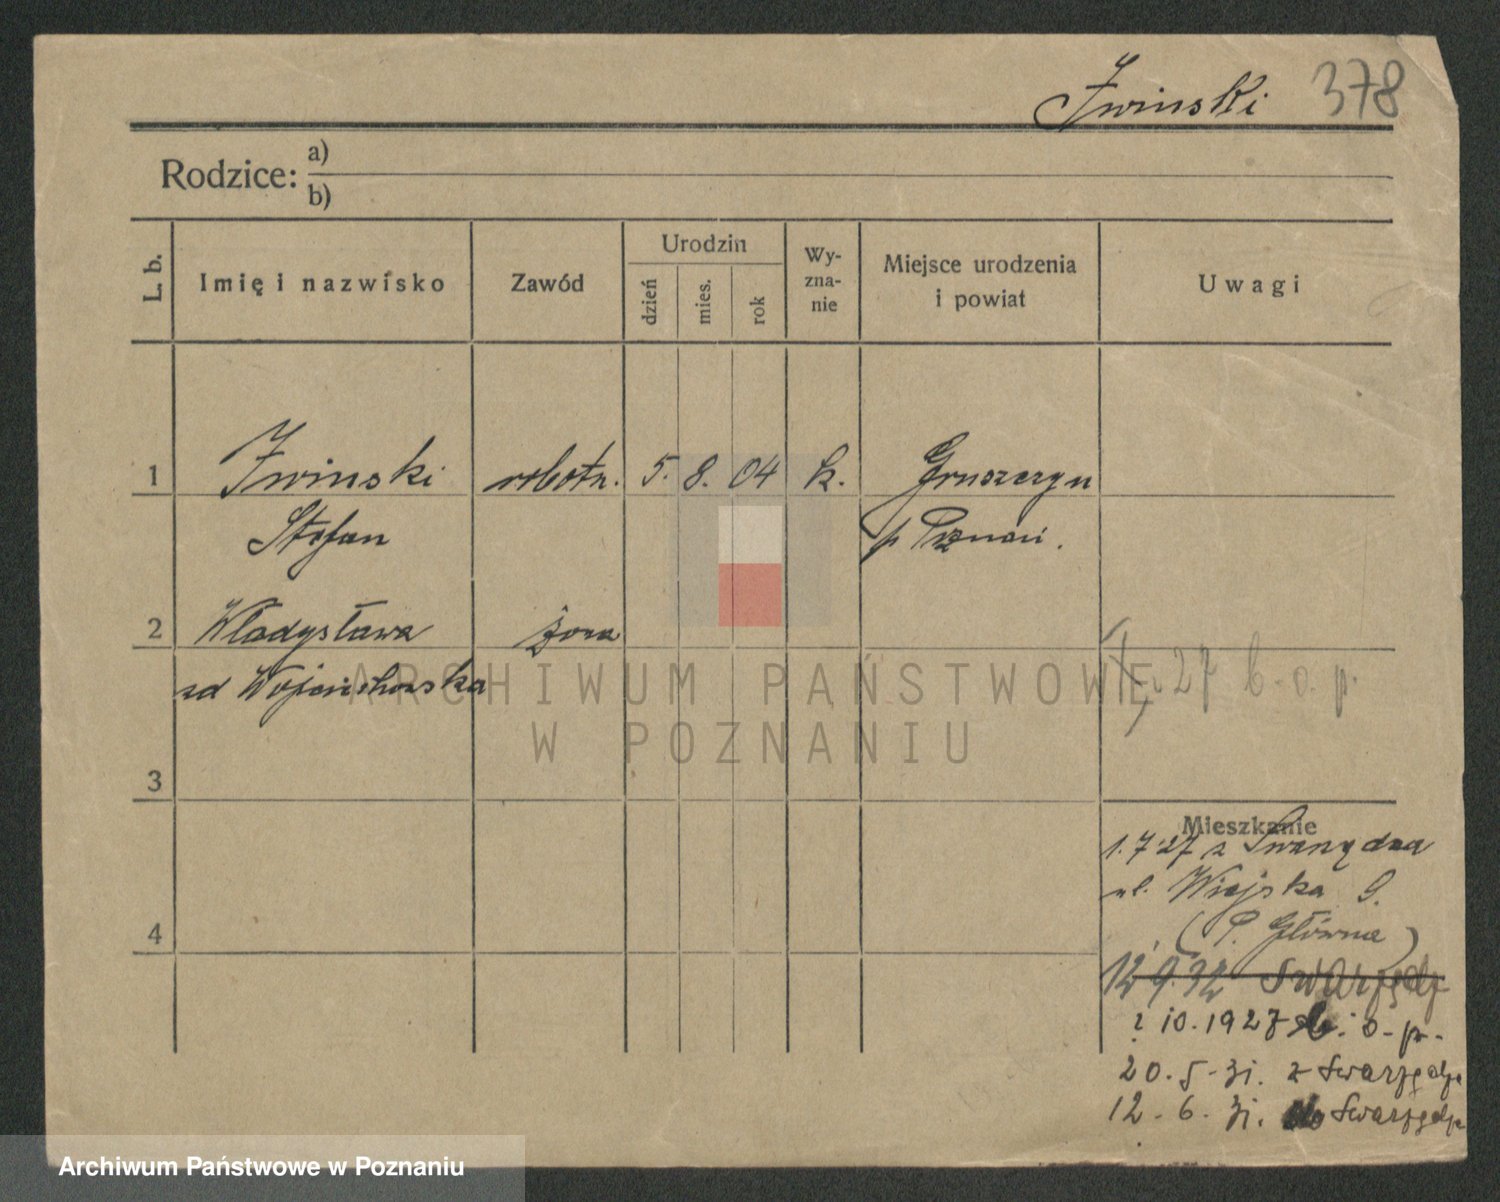 Iwinski 378
Rodzice: a)
b)
L. b. Imię i nazwisko Zawód Urodzin dzień mies. rok Wy-zna-nie Miejsce urodzenia i powiat Uwagi
1 Iwinski robotn. 5. 8. 04 k. Gruszczyn
Stefan p Poznań.
2 Władysława żona
zd Wojciechowska 27 b. o. p.
ARCHIWUM PAŃSTWOWE
W POZNANIU
3
Mieszkanie
1.7.27 z Swarzędza
ul. Wiejska 9.
4 (P. Główna)
12.9.32 Swarzędz
10.1927 b. o. p.
20.5.31. z Swarzędza
12.6.31. do Swarzędza
Archiwum Państwowe w Poznaniu